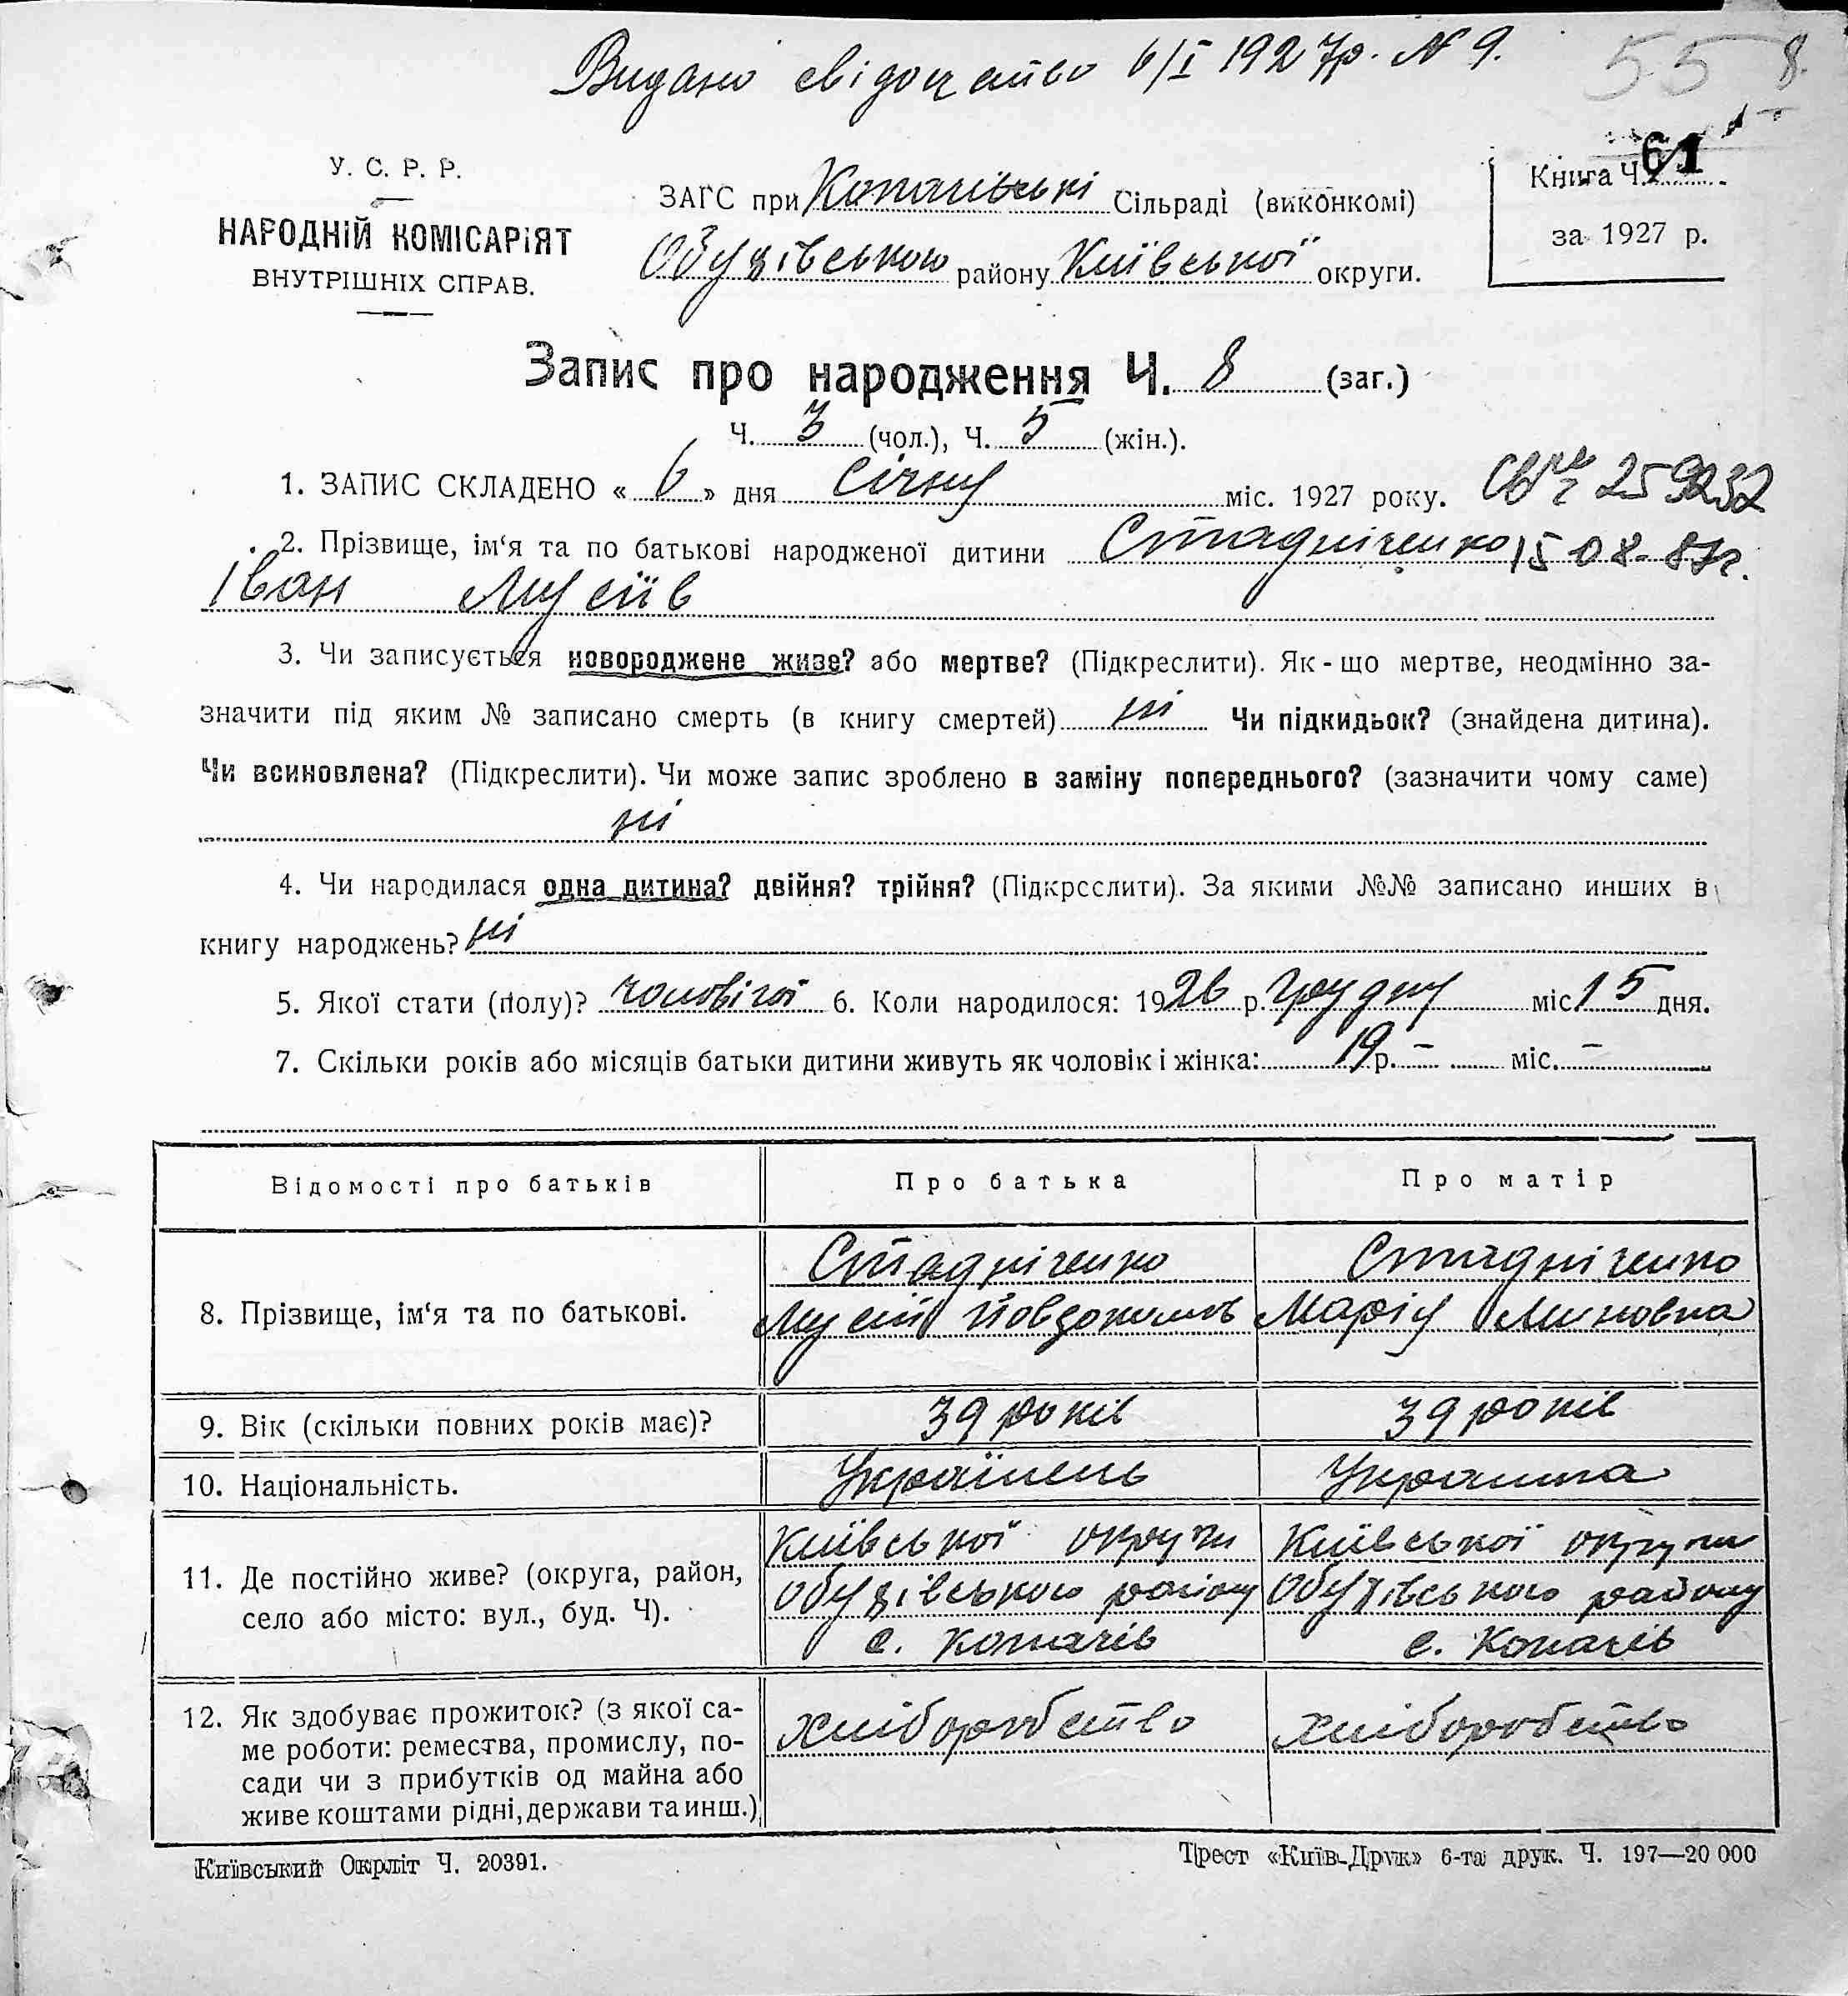 Видано свідоцтво 6/I 1927р. № 9.
55 8.
У. С. Р. Р.
НАРОДНІЙ КОМІСАРІЯТ
ВНУТРІШНІХ СПРАВ.
ЗАГС при Копачівські Сільраді (виконкомі)
Обухівського району Київської округи.
Книга Ч. 61
за 1927 р.
Запис про народження Ч. 8 (заг.)
Ч. 3 (чол.), Ч. 5 (жін.).
1. ЗАПИС СКЛАДЕНО « 6 » дня Січня міс. 1927 року.
259232
2. Прізвище, ім‘я та по батькові народженої дитини Стадніченко
15 08-87г.
Іван Мусіїв
3. Чи записується новороджене живе? або мертве? (Підкреслити). Як-що мертве, неодмінно за-
значити під яким № записано смерть (в книгу смертей) ні Чи підкидьок? (знайдена дитина).
Чи всиновлена? (Підкреслити). Чи може запис зроблено в заміну попереднього? (зазначити чому саме)
ні
4. Чи народилася одна дитина? двійня? трійня? (Підкреслити). За якими №№ записано инших в
книгу народжень? ні
5. Якої стати (полу)? чоловічої 6. Коли народилося: 1926 р. Грудня міс. 15 дня.
7. Скільки років або місяців батьки дитини живуть як чоловік і жінка: 19 р. – міс. –
Відомості про батьків Про батька Про матір
8. Прізвище, ім‘я та по батькові.
Стадніченко
Мусій Йовдокимов
Стадніченко
Марія Миновна
9. Вік (скільки повних років має)? 39 років 39 років
10. Національність. Українець Украинка
11. Де постійно живе? (округа, район,
село або місто: вул., буд. Ч).
Київської округи
Обухівського району
с. Копачів
Київської округи
Обухівського району
с. Копачів
12. Як здобуває прожиток? (з якої са-
ме роботи: ремества, промислу, по-
сади чи з прибутків од майна або
живе коштами рідні, держави та инш.)
хліборобство
хліборобство
Київський Окрліт Ч. 20391.
Трест «Київ-Друк» 6-та друк. Ч. 197—20 000